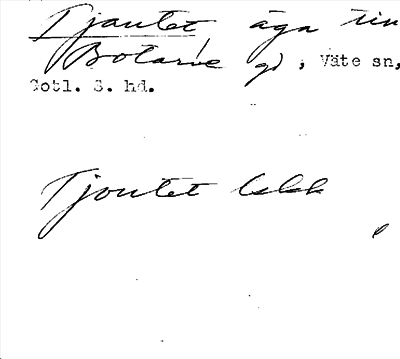 Tjautet, äga un
Botarve gd, Väte sn,
Gotl. S. hd.
Tjoutet